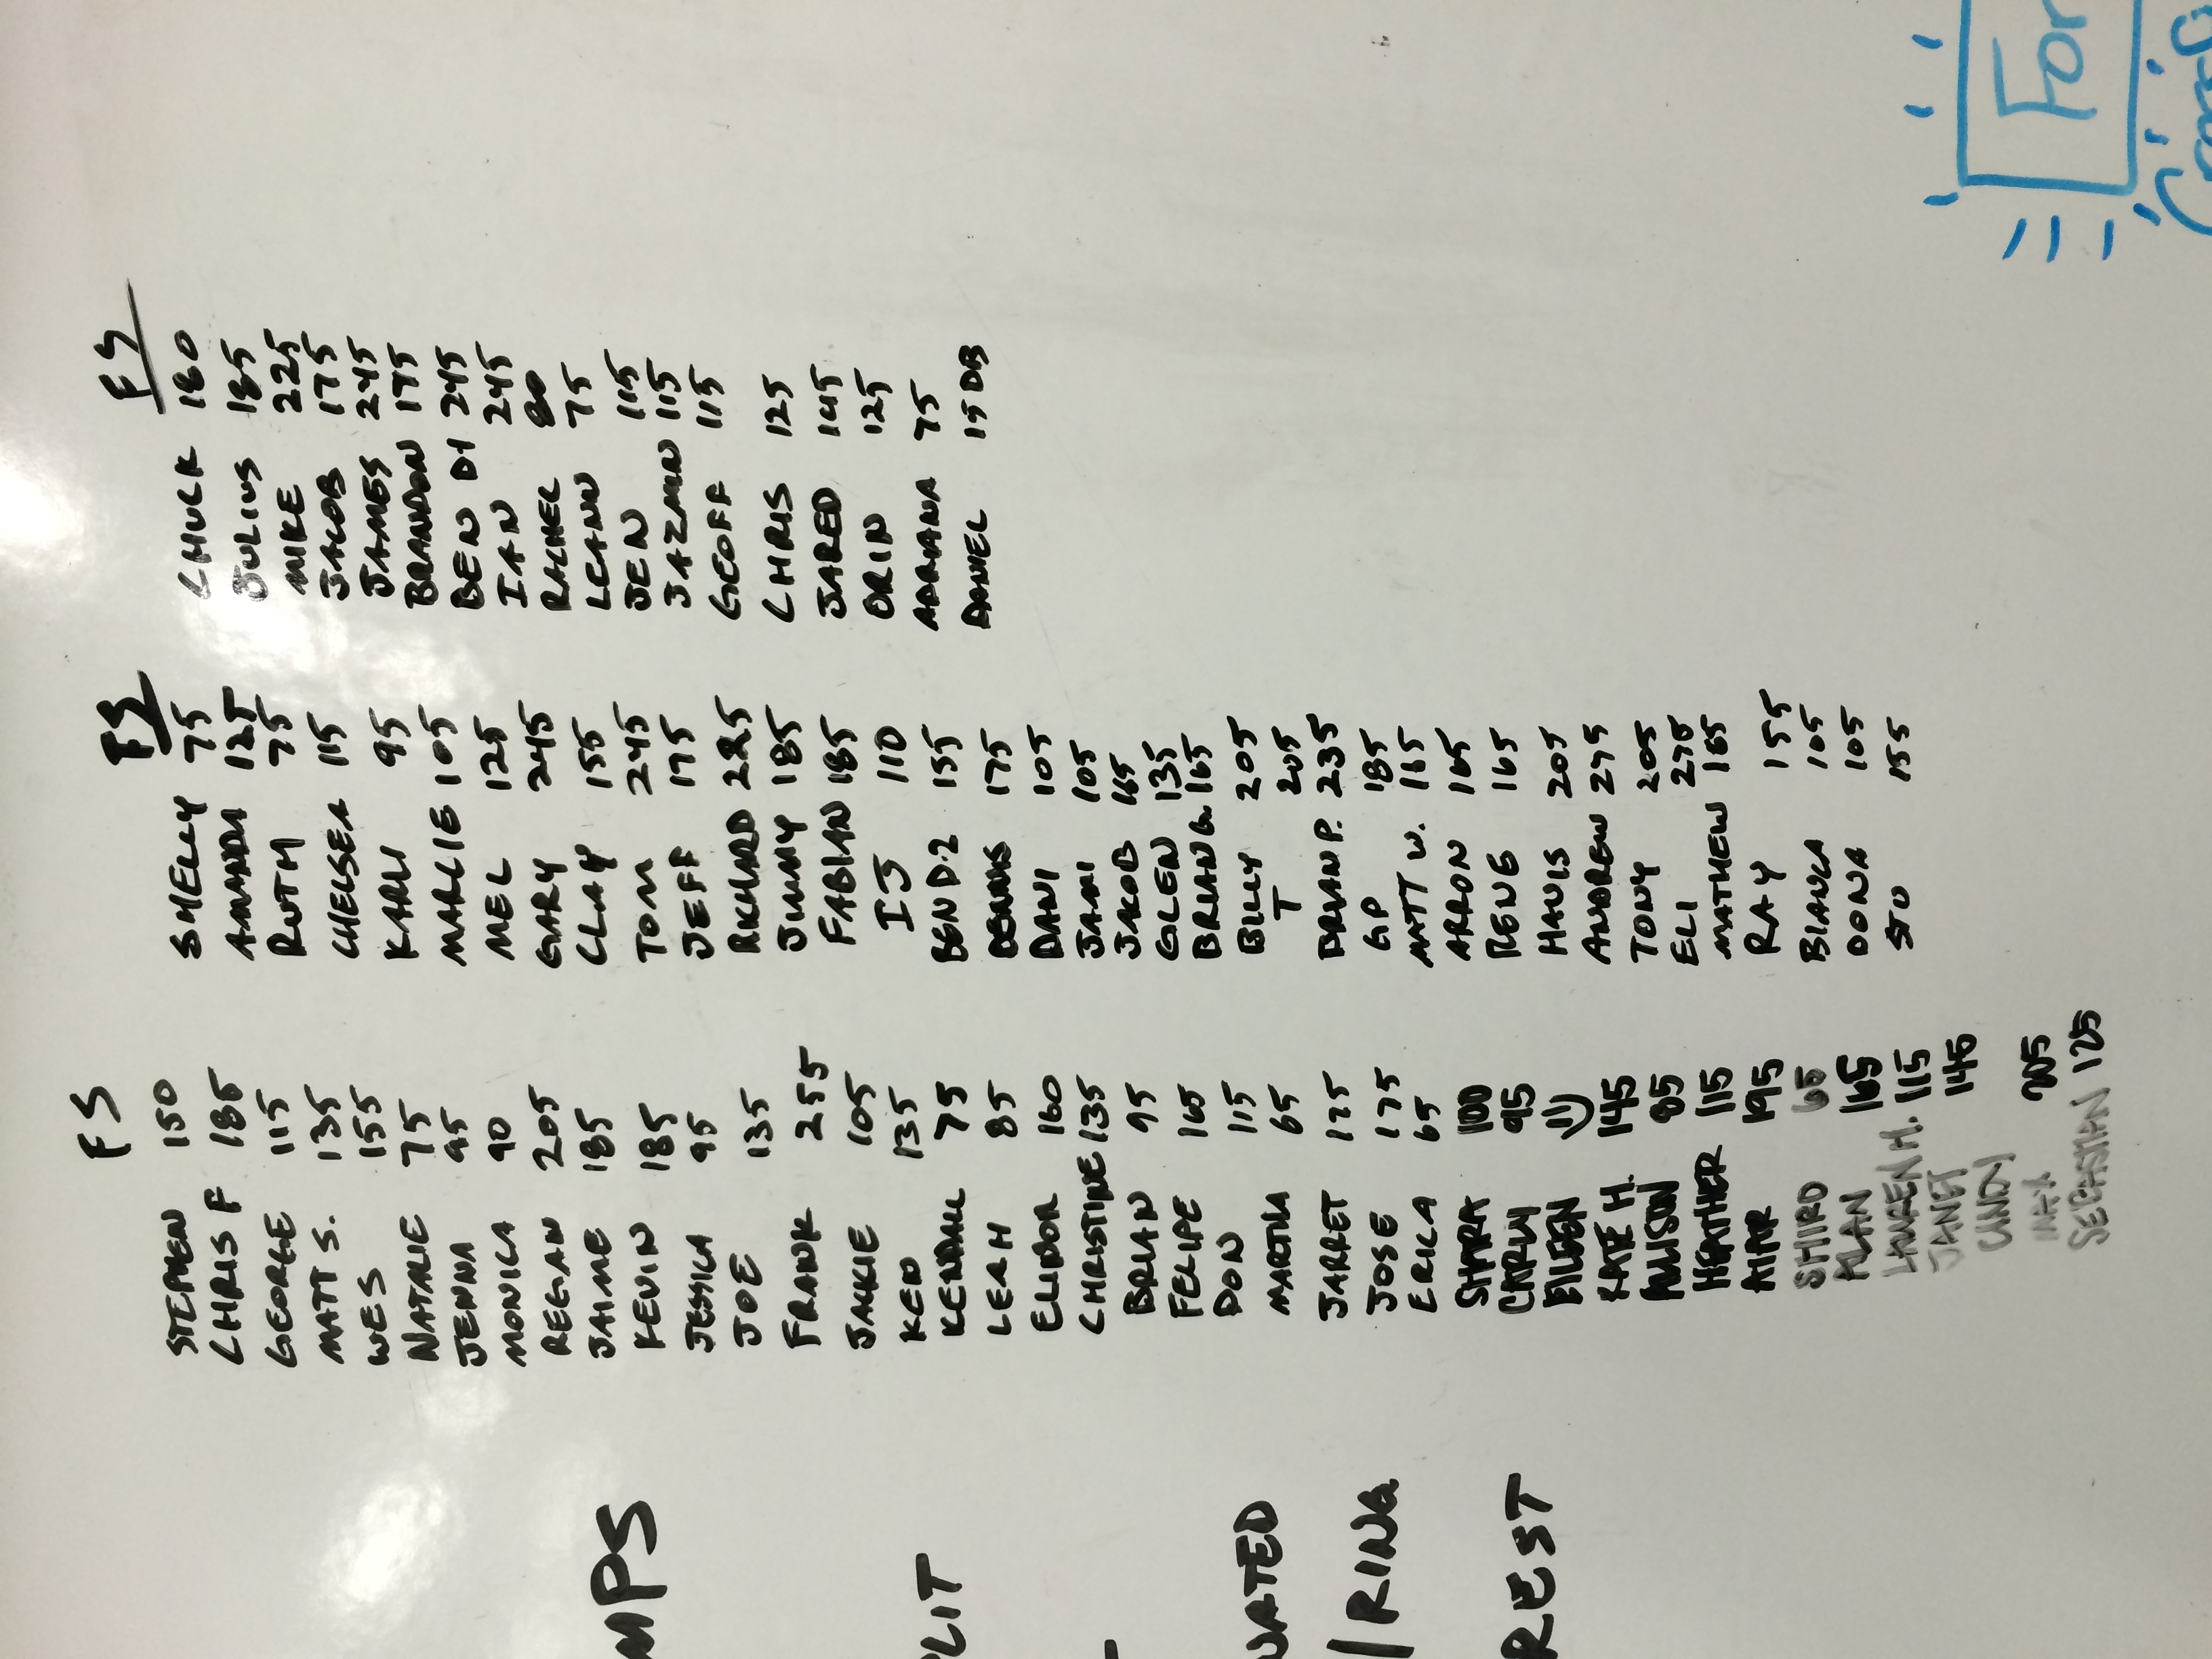 FS
STEPHEN 150
CHRIS F 185
GEORGE 115
MATT S. 135
WES 155
NATALIE 75
JENNA 95
MONICA 90
REGAN 205
JAIME 185
KEVIN 185
JESSICA 95
JOE 135
FRANK 255
JACKIE 105
KEN 135
KENDALL 75
LEAH 85
ELLINOR 160
CHRISTINE 135
BRIAN 95
FELIPE 165
DON 115
MARTHA 65
JARRET 125
JOSE 175
ERICA 65
SHARA 100
CARLY 95
EILEEN
KATE H. 145
ALLISON 85
HEATHER 115
195
SHIRO 65
ALAN 165
LAUREN H. 115
JANET 145
CINDY
MAX 205
SEBASTIAN 125
FS
SHELLY 75
AMANDA 125
RUTH 75
CHELSEA 115
KARLI 95
MARLIE 105
MEL 125
GARY 245
CLAY 155
TOM 245
JEFF 175
RICHARD 225
JIMMY 185
FABIAN 185
IJ 110
BEN D.2 155
DENNIS 175
DANI 105
JAMI 105
JAKOB 165
GLEN 135
BRIAN G. 165
BILLY 205
T 205
BRIAN P. 235
GP 185
MATT W. 165
ARRON 165
RENE 165
HAVIS 205
ANDREW 275
TONY 205
ELI 275
MATHEW 185
RAY 155
BIANCA 105
DONA 105
STU 155
FS
CHUCK 180
JULIUS 185
MIKE 225
JACOB 175
JAMES 245
BRANDON 175
BEN D1 245
IAN 245
RACHEL 80
LEANN 75
JEN 115
JAZMIN 115
GEOFF 115
CHRIS 125
JARED 145
ORIN 125
ADRIANA 75
DANIEL 15 DB
MPS
LIT
URATED
/RING
REST
For